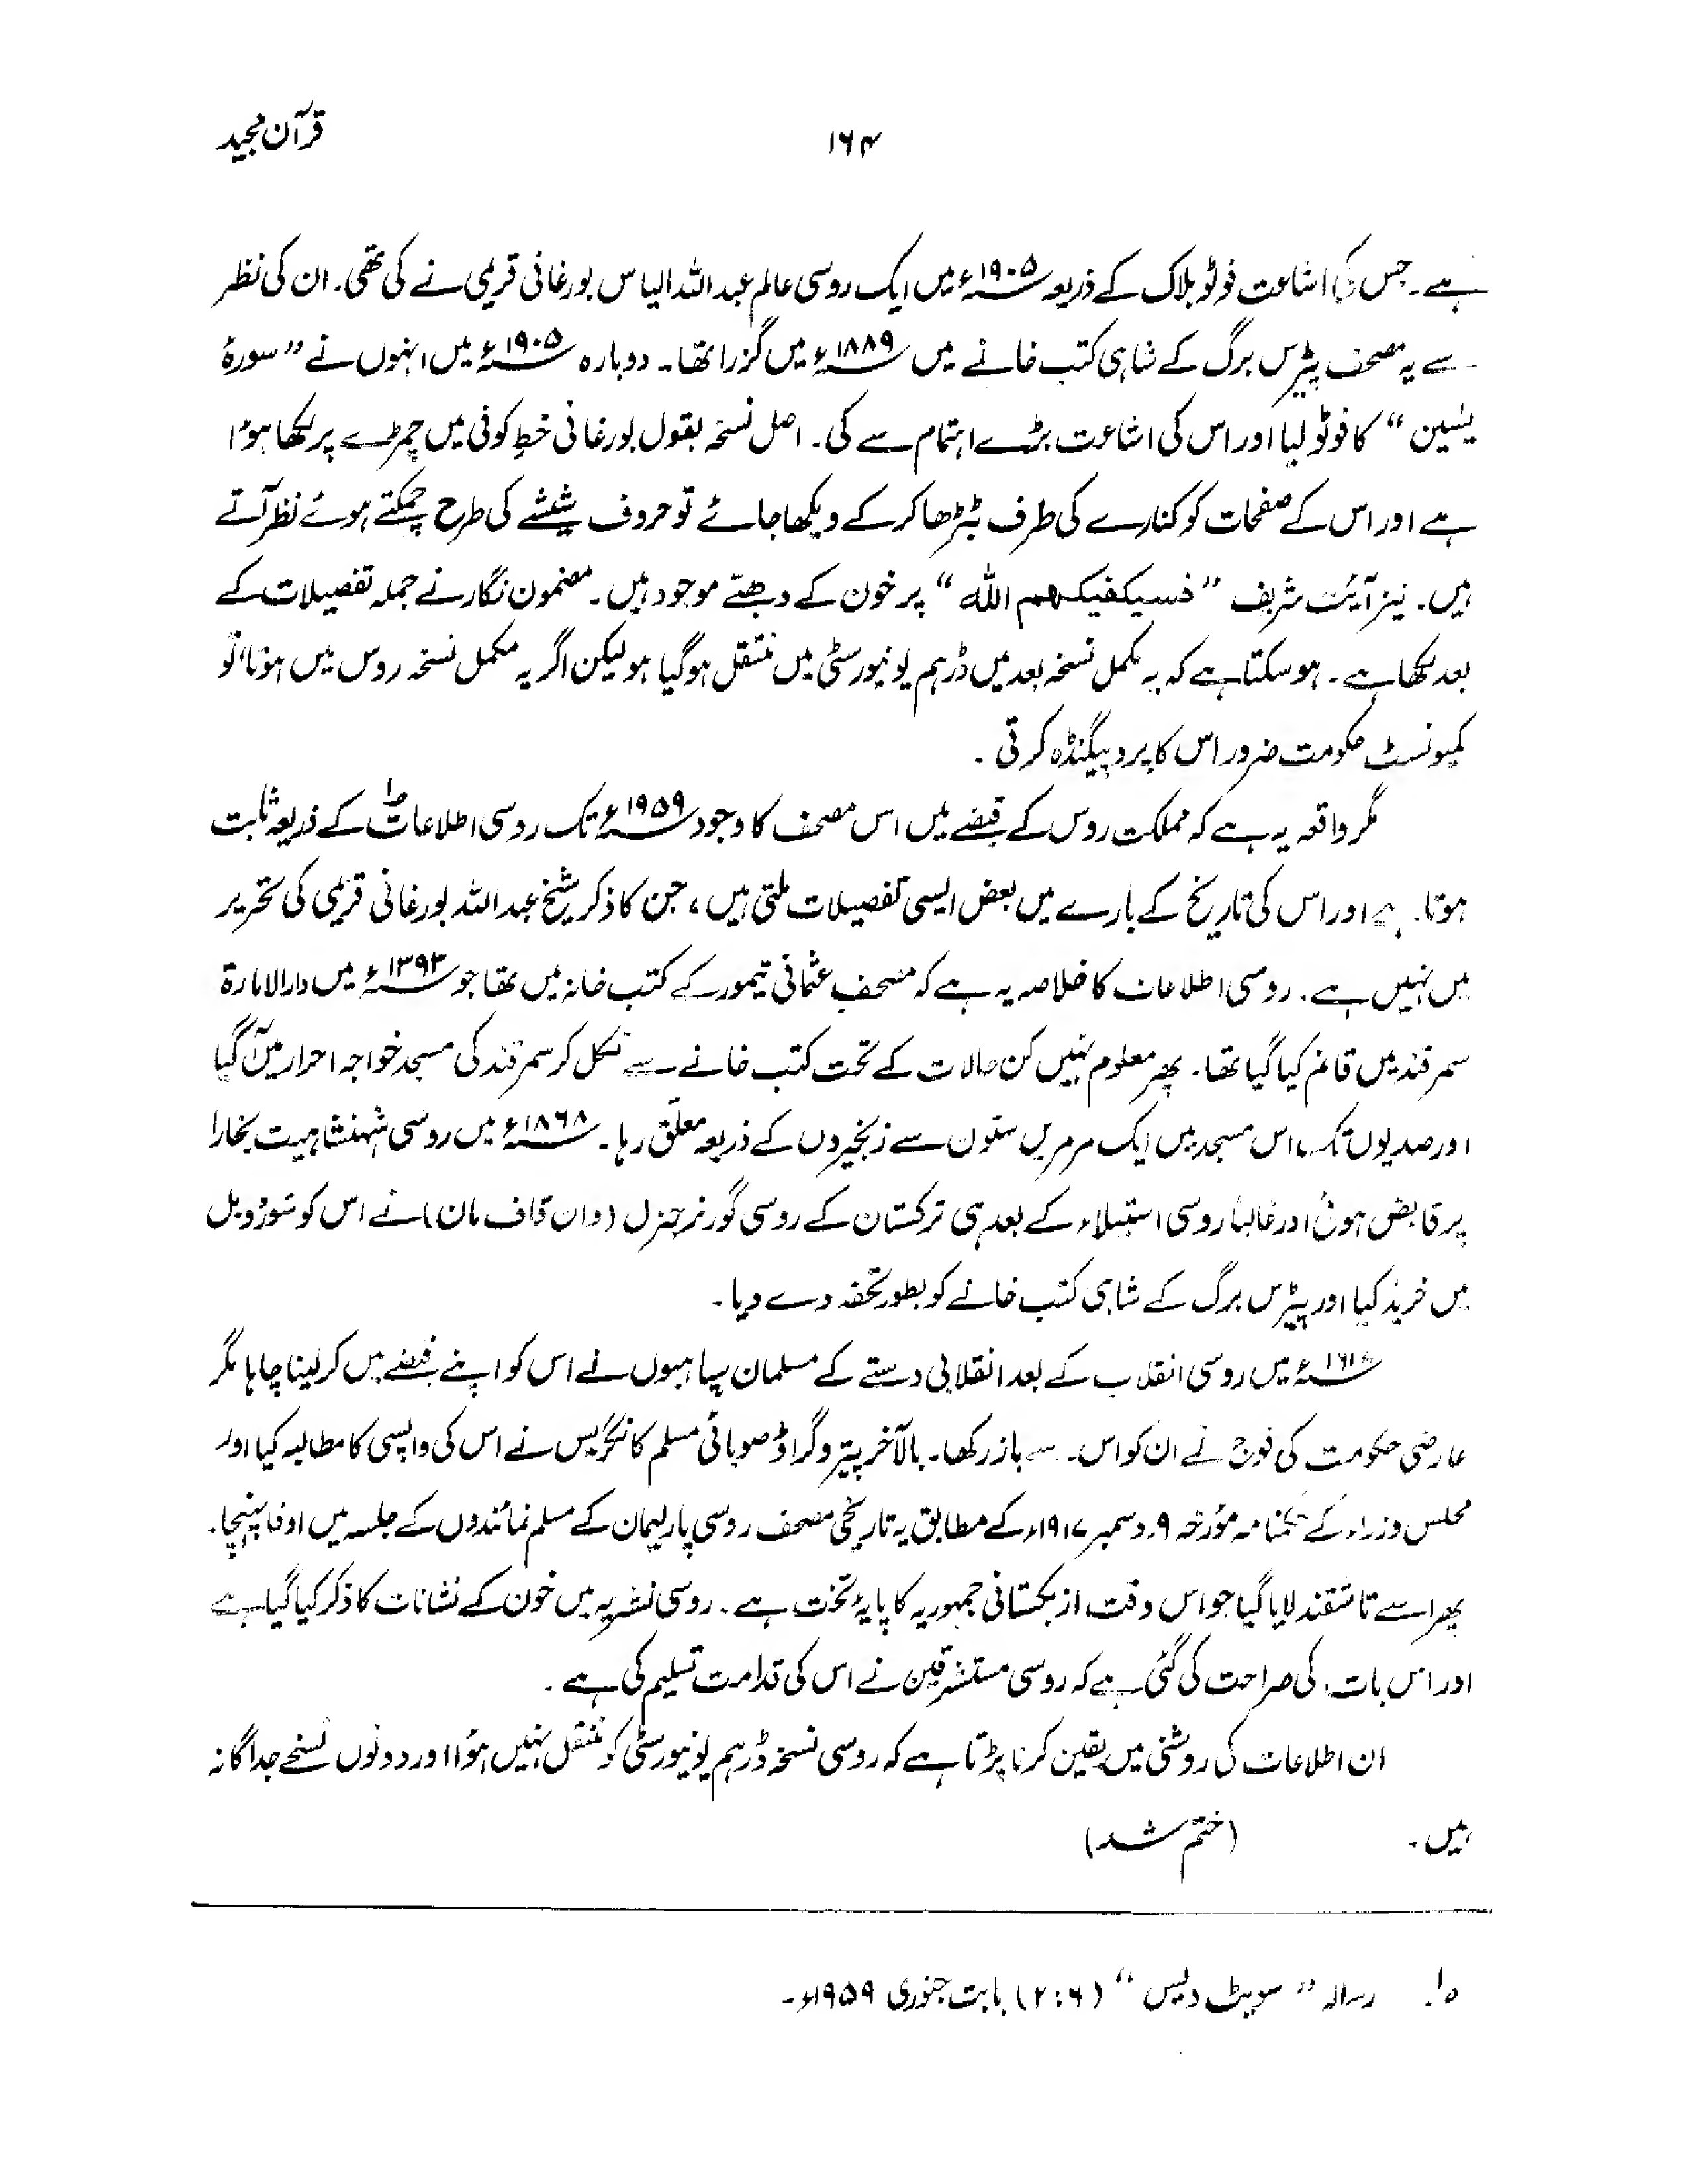 قرآن مجید
۱۶۴
ہے۔ جس کی اشاعت فوٹو بلاک کے ذریعہ ۱۹۰۵ء میں ایک روسی عالم عبد اللہ الیاس بورغانی قریمی نے کی تھی۔ ان کی نظر
سے یہ مصحف پیٹرس برگ کے شاہی کتب خانے میں ۱۸۸۹ء میں گزرا تھا۔ دوبارہ ۱۹۰۵ء میں انہوں نے ”سورۂ
یٰسین“ کا فوٹو لیا اور اس کی اشاعت بڑے اہتمام سے کی۔ اصل نسخہ بقول بورغانی خطِ کوفی میں چمڑے پر لکھا ہوا
ہے اور اس کے صفحات کو کنارے کی طرف ٹیڑھا کر کے دیکھا جائے تو حروف شیشے کی طرح چمکتے ہوئے نظر آتے
ہیں۔ نیز آیت شریف ”فسیکفیکھم اللہ“ پر خون کے دھبے موجود ہیں۔ مضمون نگار نے جملہ تفصیلات کے
بعد لکھا ہے۔ ہو سکتا ہے کہ یہ مکمل نسخہ بعد میں ڈرہم یونیورسٹی میں منتقل ہو گیا ہو لیکن اگر یہ مکمل نسخہ روس میں ہوتا تو
کمیونسٹ حکومت ضرور اس کا پروپیگنڈہ کرتی۔
مگر واقعہ یہ ہے کہ مملکت روس کے قبضے میں اس مصحف کا وجود ۱۹۵۹ء تک روسی اطلاعات ؎۱ کے ذریعہ ثابت
ہوتا ہے اور اس کی تاریخ کے بارے میں بعض ایسی تفصیلات ملتی ہیں، جن کا ذکر شیخ عبد اللہ بورغانی قریمی کی تحریر
میں نہیں ہے۔ روسی اطلاعات کا خلاصہ یہ ہے کہ مصحف عثمانی تیمور کے کتب خانہ میں تھا جو ۱۳۹۳ء میں دارالامارۃ
سمرقند میں قائم کیا گیا تھا۔ پھر معلوم نہیں کن حالات کے تحت کتب خانے سے نکل کر سمرقند کی مسجد خواجہ احرار میں آ گیا
اور صدیوں تک اس مسجد میں ایک مرمریں ستون سے زنجیروں کے ذریعہ معلّق رہا۔ ۱۸۶۸ء میں روسی شہنشاہیت بخارا
پر قابض ہوئی اور غالباً روسی استیلاء کے بعد ہی ترکستان کے روسی گورنر جنرل (وان قاف مان) نے اس کو سو روبل
میں خرید کیا اور پیٹرس برگ کے شاہی کتب خانے کو بطور تحفہ دے دیا۔
میں روسی انقلاب کے بعد انقلابی دستے کے مسلمان سپاہیوں نے اس کو اپنے قبضے میں کر لینا چاہا مگر
عارضی حکومت کی فوج نے ان کو اس سے باز رکھا۔ بالآخر پیتروگراڈ صوبائی مسلم کانگریس نے اس کی واپسی کا مطالبہ کیا اور
مجلس وزراء کے حکمنامہ مؤرخہ ۹؍دسمبر ۱۹۱۷ء کے مطابق یہ تاریخی مصحف روسی پارلیمان کے مسلم نمائندوں کے جلسہ میں اوفا پہنچا۔
پھر اسے تاشقند لایا گیا جو اس وقت ازبکستانی جمہوریہ کا پایۂ تخت ہے۔ روسی نشریہ میں خون کے نشانات کا ذکر کیا گیا ہے
اور اس بات کی صراحت کی گئی ہے کہ روسی مستشرقین نے اس کی قدامت تسلیم کی ہے۔
ان اطلاعات کی روشنی میں یقین کرنا پڑتا ہے کہ روسی نسخہ ڈرہم یونیورسٹی کو منتقل نہیں ہوا اور دونوں نسخے جداگانہ
ہیں۔ (ختم شد)
؎۱ رسالہ ”سویٹ دیس“ (۲:۶) بابت جنوری ۱۹۵۹ء۔